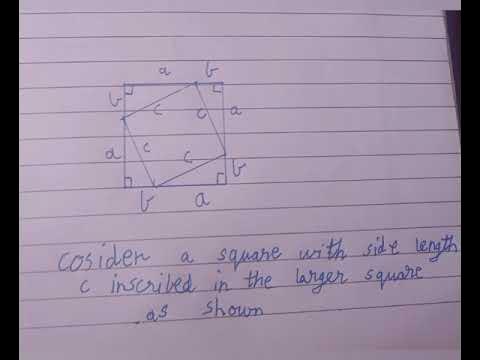 a b
b c c a
a c c b
b a
cosiden a square with side length
c inscribed in the larger square
as shown